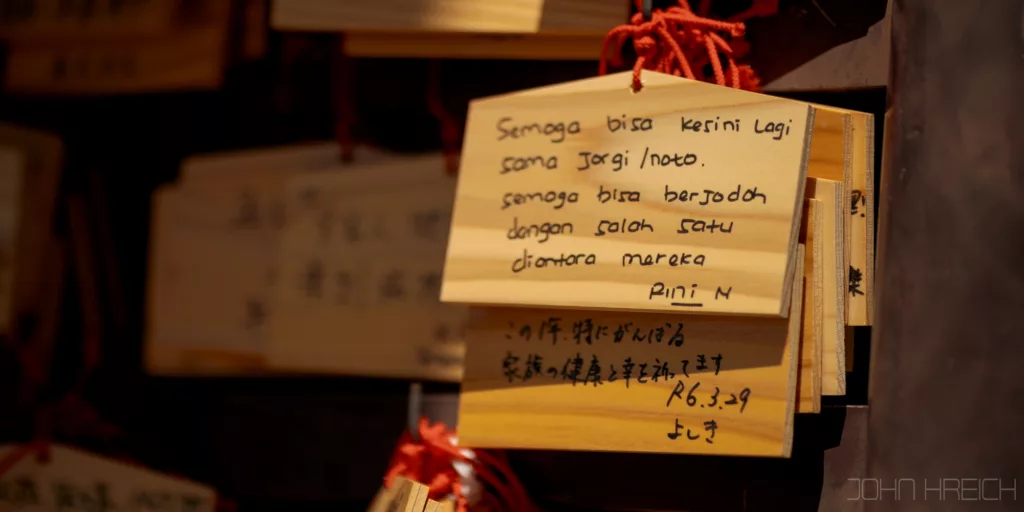 Semoga bisa kesini lagi
sama Jorgi /noto.
semoga bisa berjodoh
dengan salah satu
diantara mereka
Rini N
この1年.特にがんばる
家族の健康と幸を祈ってます
R6.3.29
よしき
JOHN HREICH